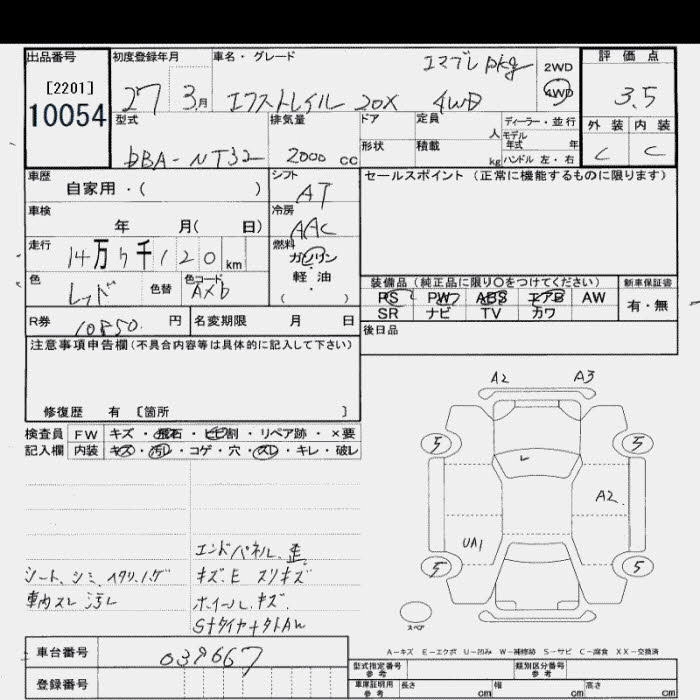 出品番号 初度登録年月 車名・グレード 評価点
[2201]
10054
27 3月 エクストレイル 20X 4WD エマブレ pkg
2WD
4WD
3.5
型式 排気量 ドア 定員 人 ディーラー・並行 外装 内装
モデル年式 年
DBA-NT32 2000 cc 形状 積載 kg ハンドル 左・右 C C
車歴 シフト セールスポイント (正常に機能するものに限ります)
自家用・( ) AT
車検 冷房
年 月( 日) AAC
走行 燃料
14万 千120km ガソリン・軽油
( )
色 色替 色コード
レッド AXb
装備品 (純正品に限り○をつけてください) 新車保証書
PS PW ABS エアB AW 有・無
SR ナビ TV カワ
R券 10850. 円 名変期限 月 日
後日品
注意事項申告欄(不具合内容等は具体的に記入して下さい)
修復歴 有 〔箇所 〕
検査員 FW キズ・飛石・ヒビ割・リペア跡・×要
記入欄 内装 キズ・汚レ・コゲ・穴・スレ・キレ・破レ
A2 A3
5 5
A2
UA1
5 5
スペア
エンドパネル、歪
シート、シミ、ヘタリ、ハゲ キズ、E スリキズ
車内スレ 汚レ ホイール、キズ、
A-キズ E-エクボ U-凹み W-補修跡 S-サビ C-腐食 XX-交換済
車台番号 039667
登録番号
型式指定番号 参考 類別区分番号 参考
車庫証明用 参考 長さ cm 幅 cm 高さ cm